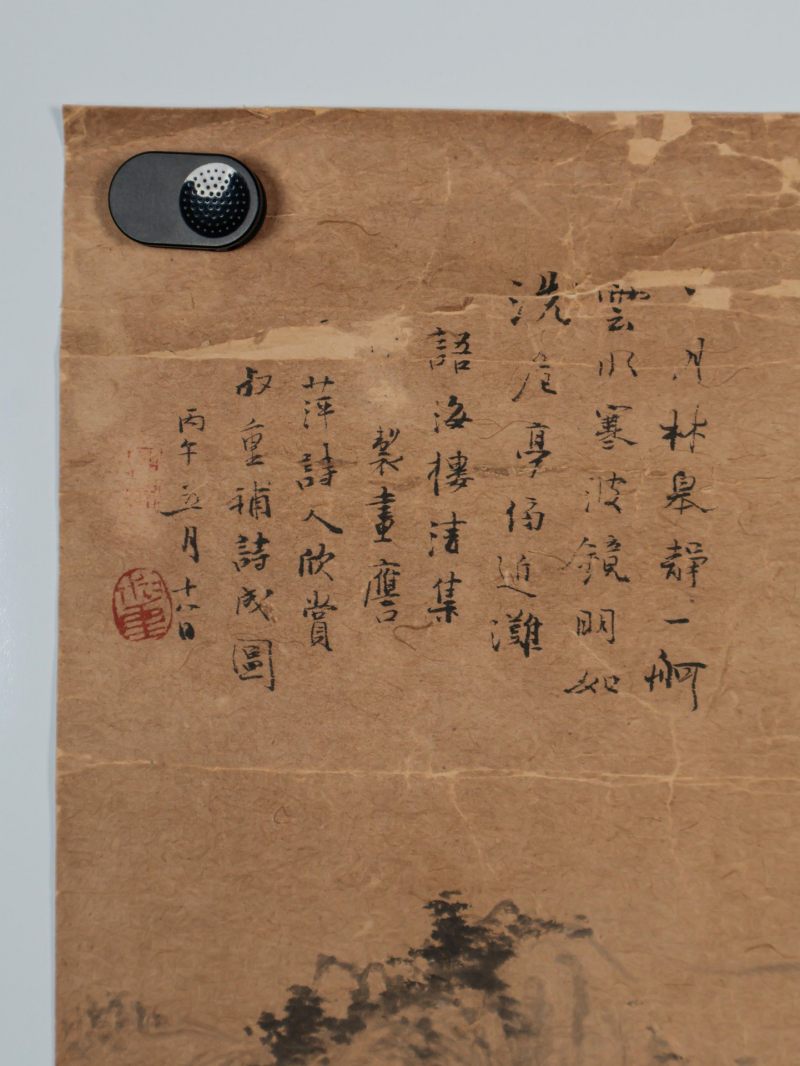 月林皋靜一舸
雲水寒波鏡明如
洗危亭偪近灘
語海樓清集
製畫應
萍詩人欣賞
叔重補詩成圖
丙午五月十八日
叔重